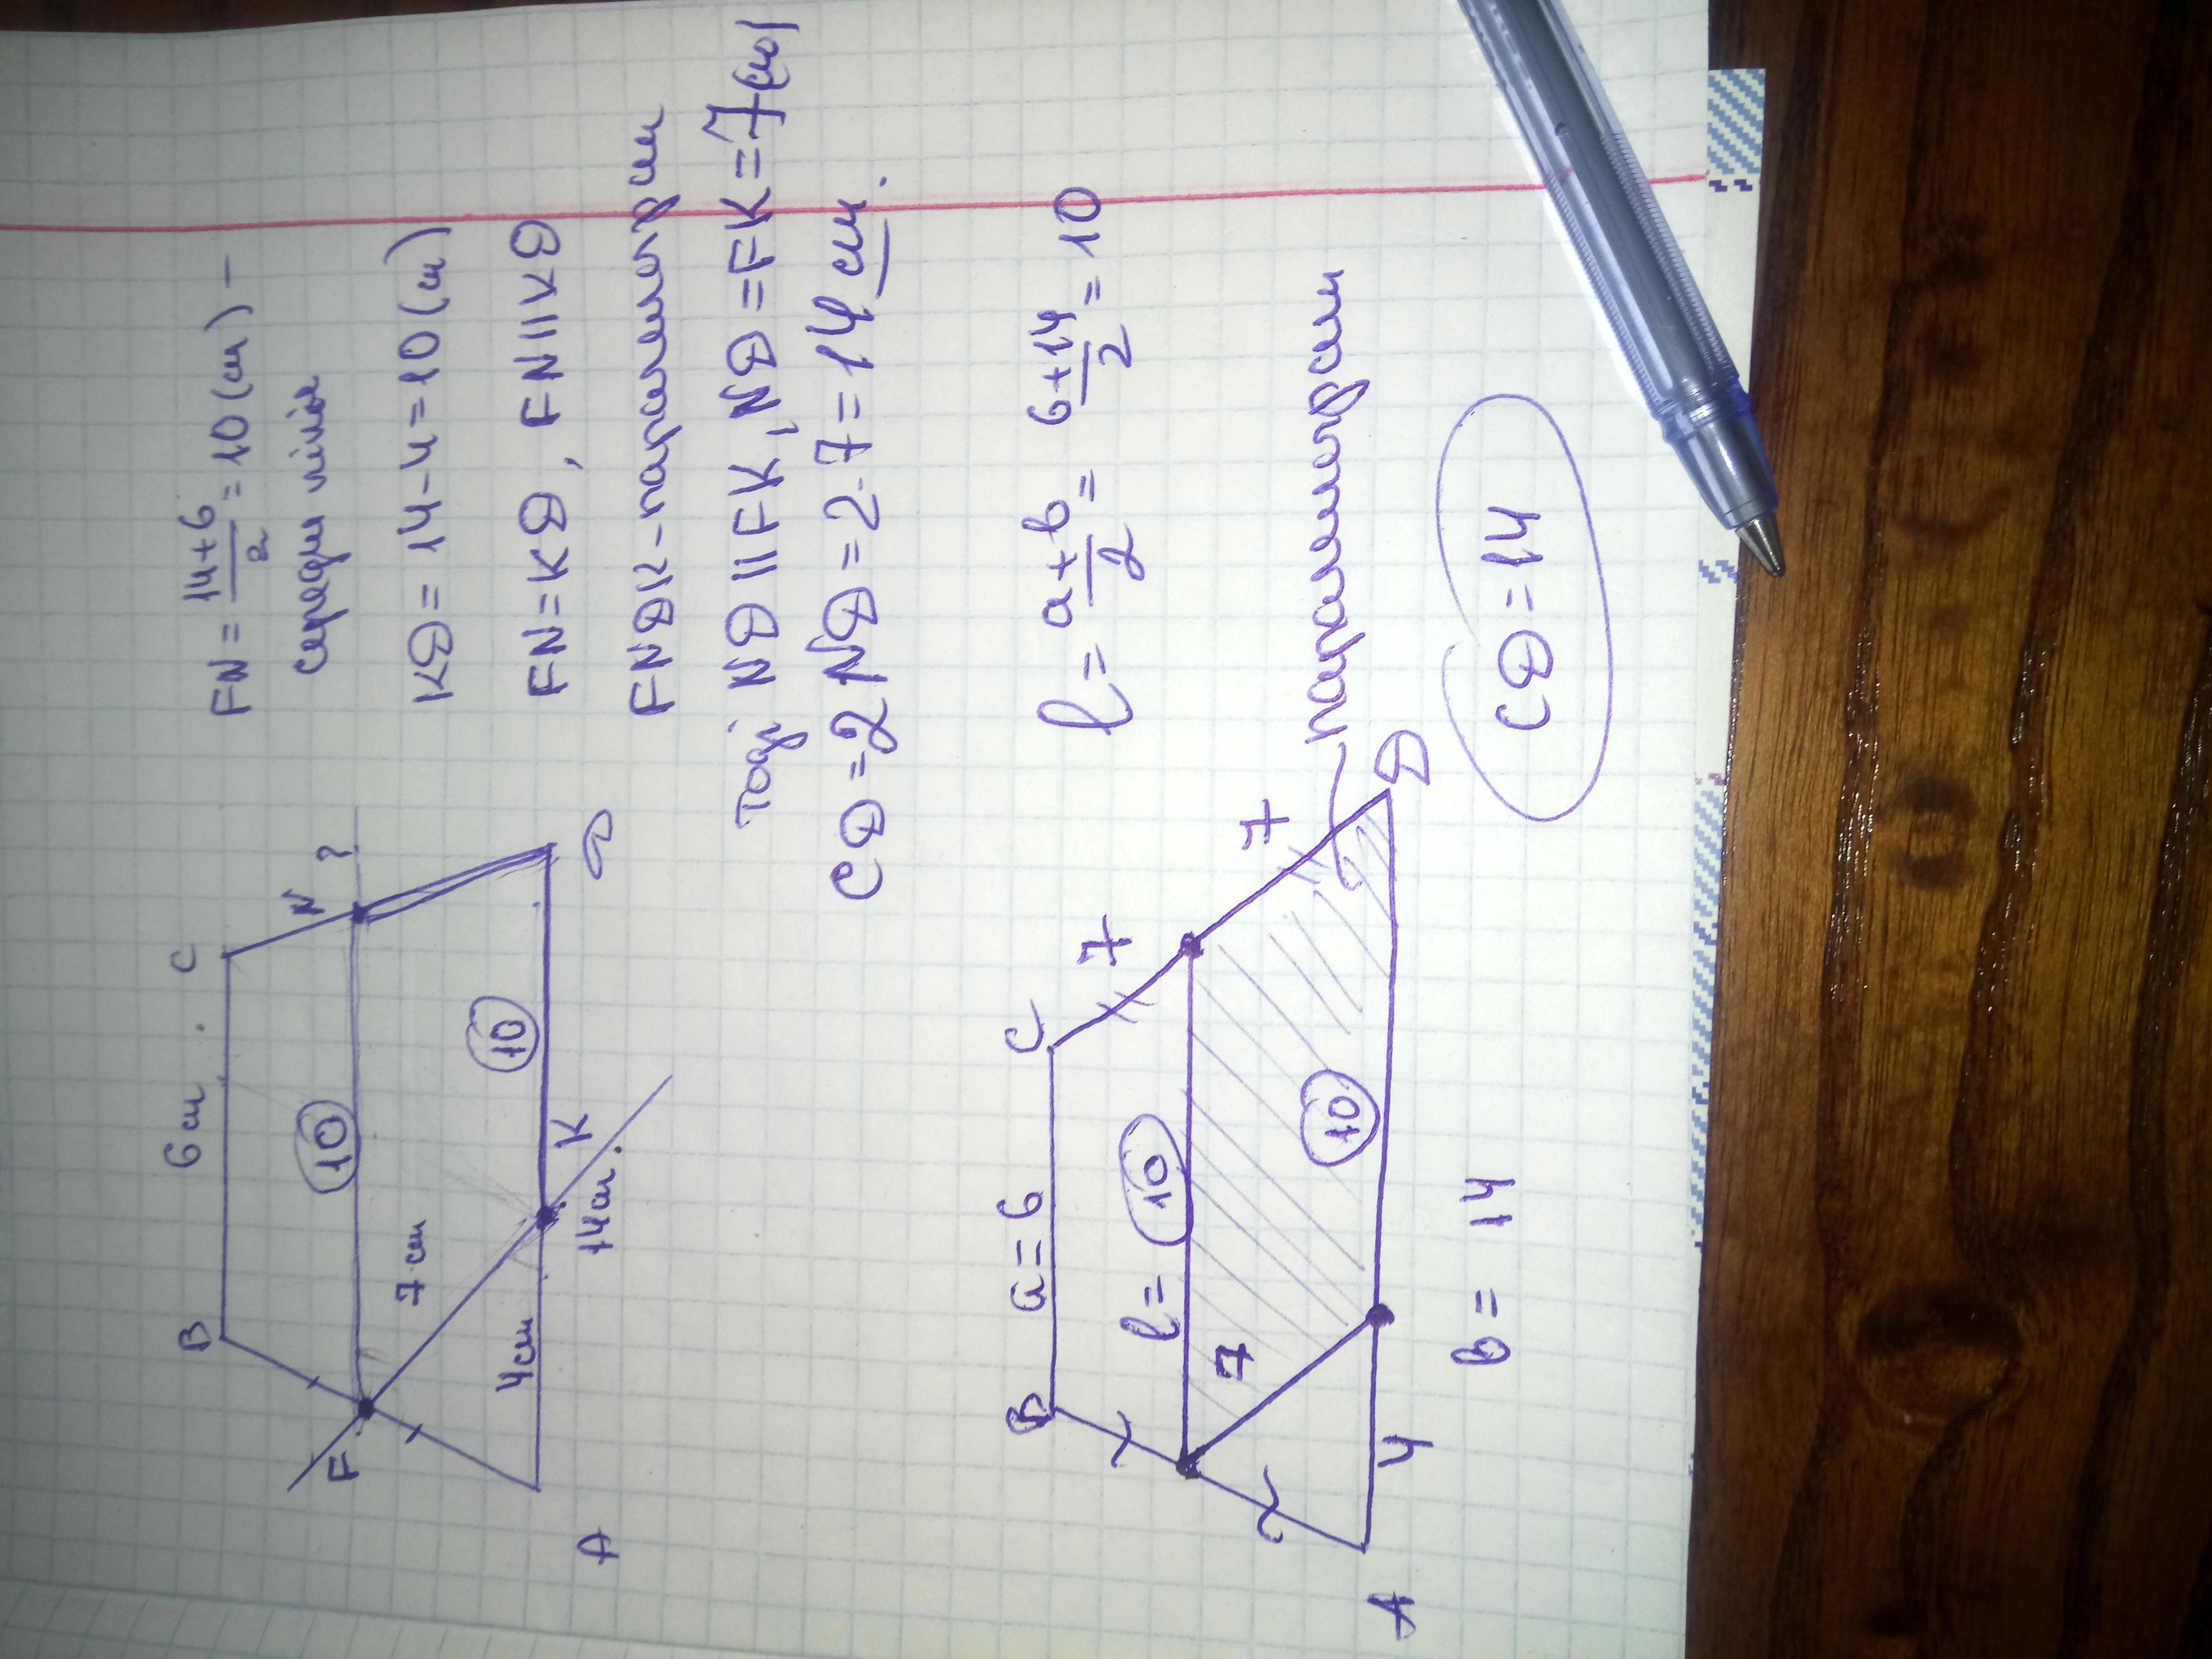 B
6 см.
C
F
10
N
?
7 см
10
4см
K
14см.
A
D
FN = 14+6/2 = 10 (см) –
середн лінія
KD = 14-4 = 10 (см)
FN = KD , FN || KD
FNDK - паралелограм
тоді ND || FK, ND = FK = 7 (см)
CD = 2 ND = 2·7 = 14 см.
B
a = 6
C
7
l = 10
7
7
10
A
4
D
b = 14
l = a+b/2 = 6+14/2 = 10
паралелограм
CD = 14